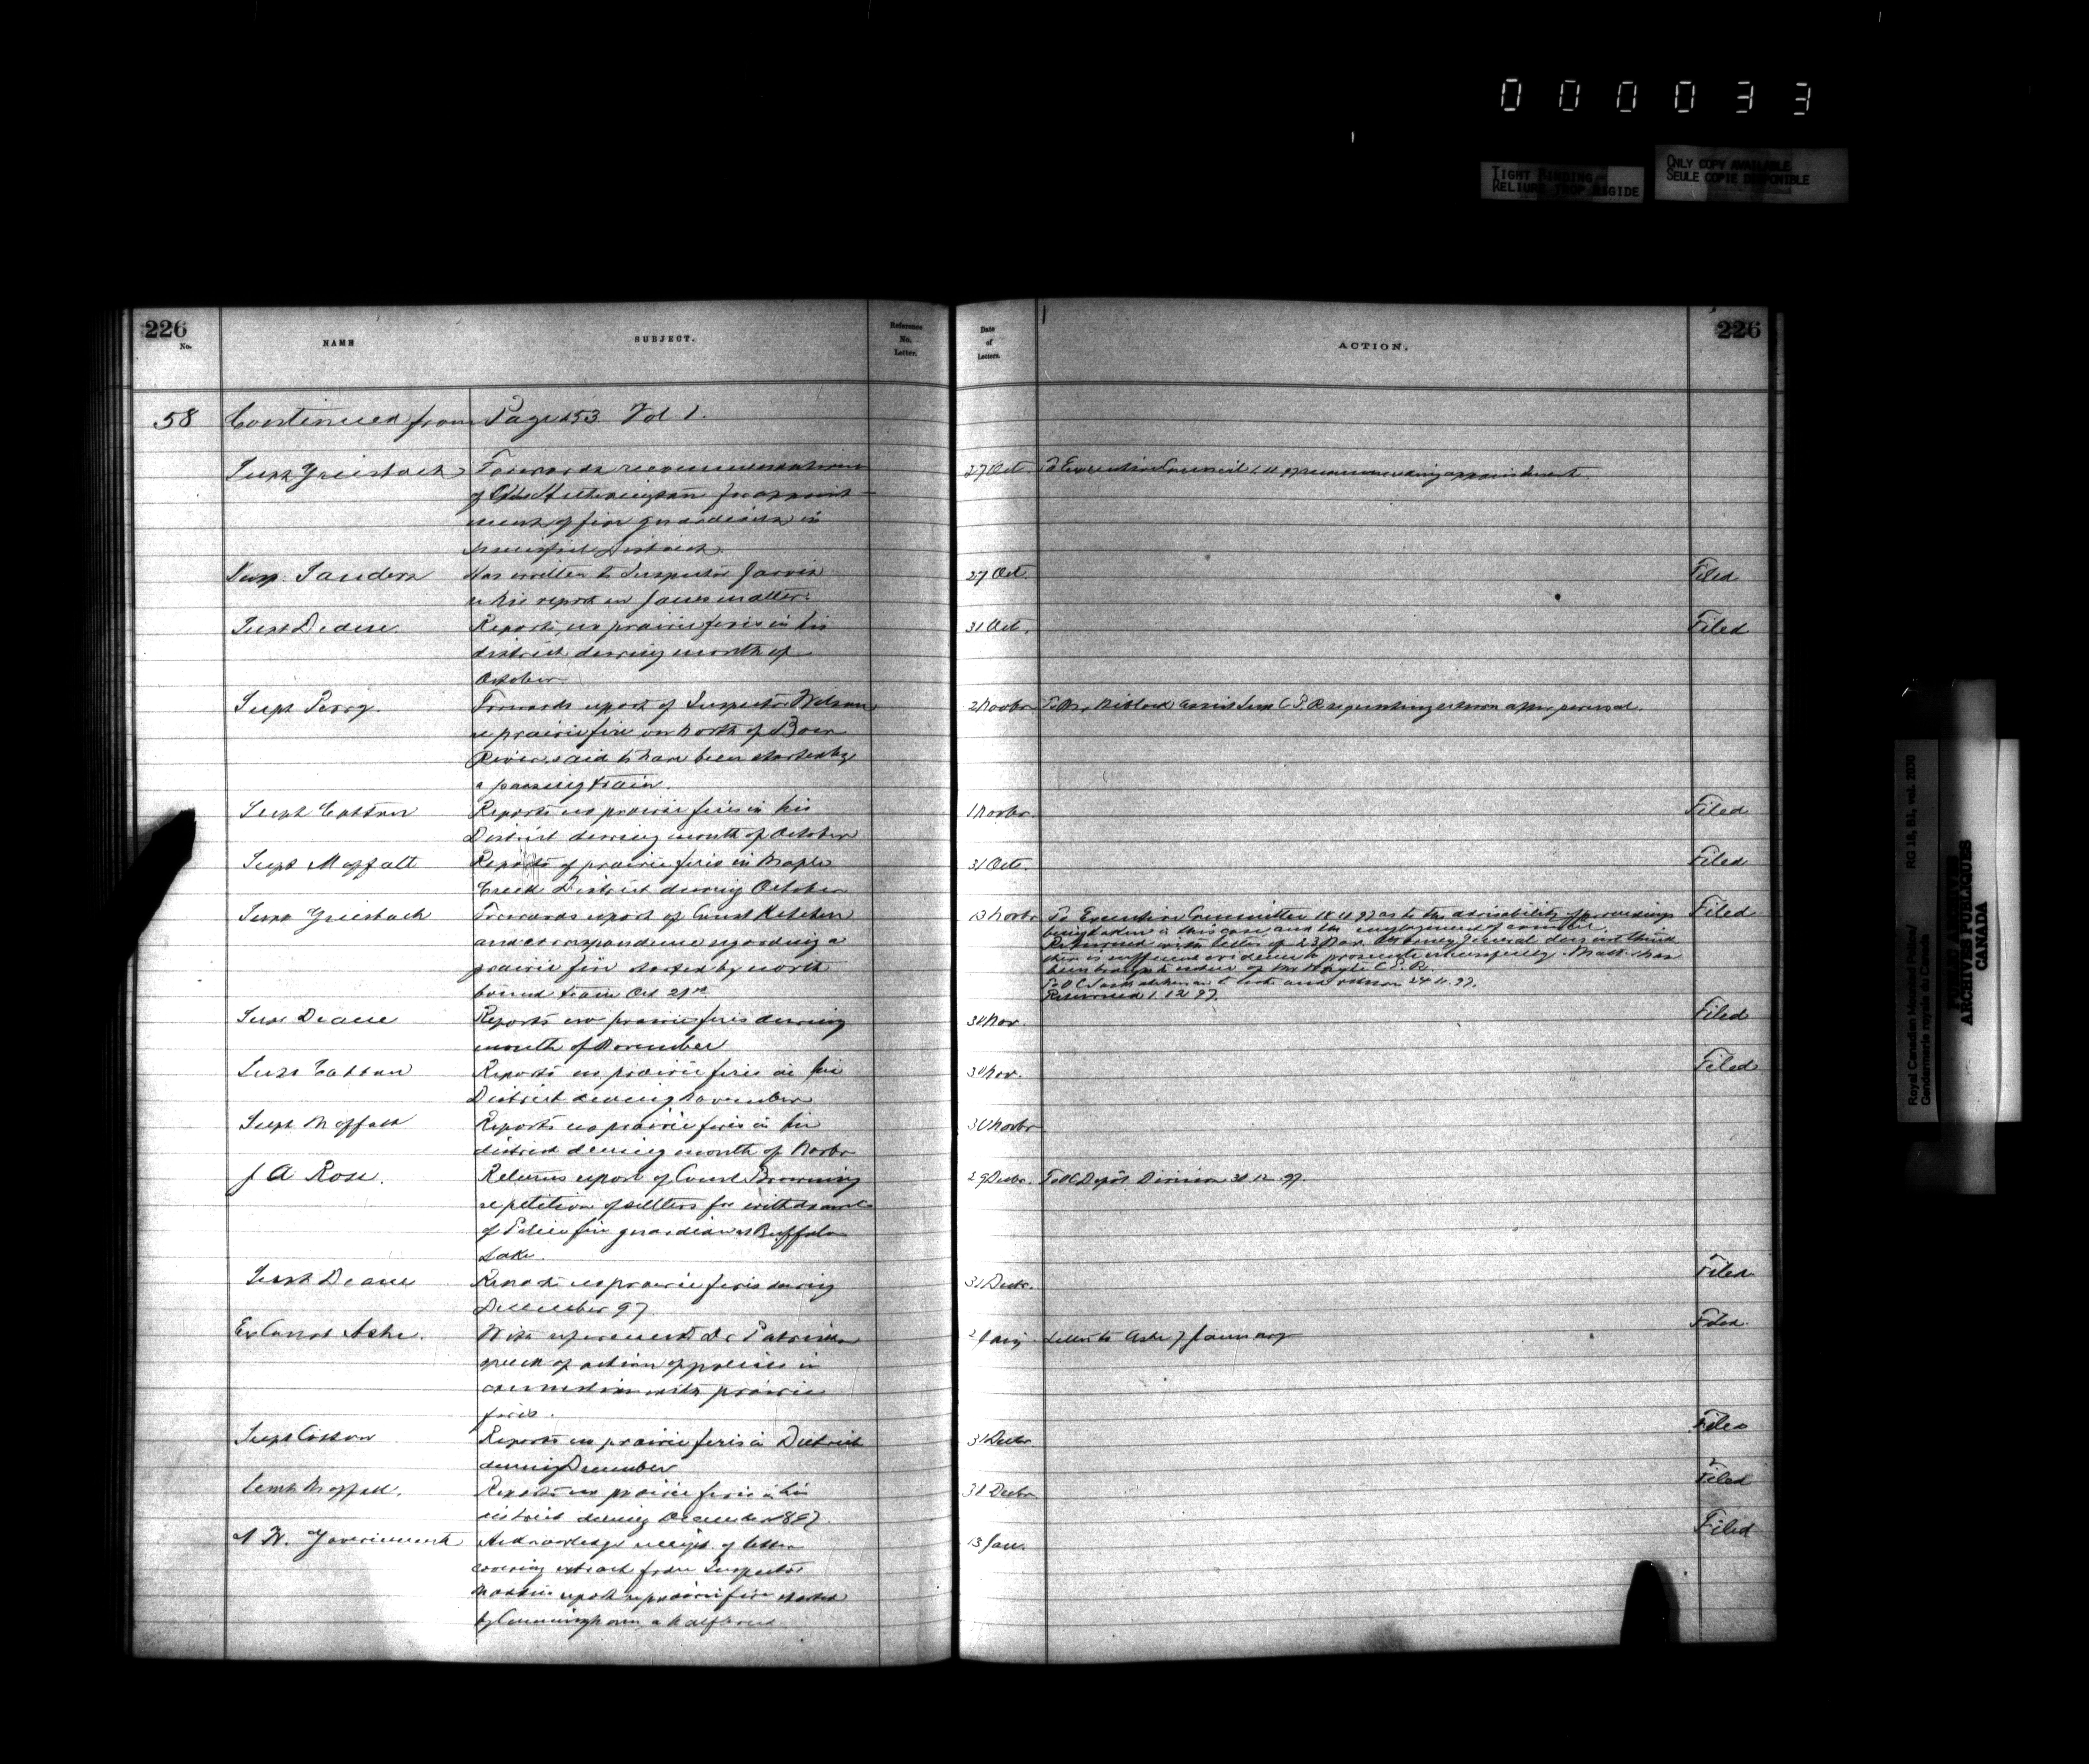 000033
TIGHT BINDING
RELIURE TROP RIGIDE
ONLY COPY AVAILABLE
SEULE COPIE DISPONIBLE
226
No.
NAME
SUBJECT.
Reference
No.
Letter.
Date
of
Letters.
ACTION.
226
58 Continued from Page 153 Vol 1.
Supt Griesbach Forwards recommendation 27 Oct To Executive Council recommending appointment
of Hetherington for appoint-
ment of fire guardians in
District
Supt. Sanders Has written to Inspector Jarvis 27 Oct. Filed
report in Jones matter.
Supt Deane. Reports no prairie fires in his 31 Oct. Filed
district during month of
October
Supt Perry. Forwards report of Inspector Wilson 2 Novbr To Mr Niblock Assist Supt C.P.R requesting return after perusal.
re prairie fire on north of Bow
River said to have been started by
a passing train.
Supt Cotton Reports no prairie fires in his 1 Novbr. Filed
District during month of October
Supt Moffatt Reports of prairie fires in Maple 31 Oct. Filed
Creek District during October
Supt Griesbach Forwards report of Const Ketchen 13 Novbr To Executive Committee 18 11 97 as to the advisability of proceedings Filed
and correspondence regarding a being taken in this case and the employment of counsel.
prairie fire started by north Returned with letter of 23 Nov. Attorney General does not think
bound train Oct 21st there is sufficient evidence to prosecute successfully. Matter has
been brought to notice of Mr Whyte C.P.R.
To O C Saskatchewan to note and return 24 11 97.
Returned 1 12 97.
Supt Deane Reports no prairie fires during 30 Nov. Filed
month of November
Supt Cotton Reports no prairie fires in his 30 Nov. Filed
District during November
Supt Moffatt Reports no prairie fires in his 30 Novbr
district during month of Novbr
J A Ross. Returns report of Const Browning 29 Decbr. To O C Depôt Division 30 12 97.
re petition of settlers for withdrawal
of Police fire guardian at Buffalo
Lake.
Supt Deane Reports no prairie fires during 31 Decbr. Filed
December 97
Ex Const Ashe. With reference to Dr Patrick's 2 Jany Letter to Ashe 7 January Filed
speech of action of police in
connection with prairie
fires.
Supt Cotton Reports no prairie fires in District 31 Decbr Filed
during December
Supt Moffatt. Reports no prairie fires in his 31 Decbr Filed
district during December 1897.
N. W. Government Acknowledges receipt of letter 13 Jan. Filed
covering extract from Inspector
report re prairie fire started
by Cunningham a halfbreed
Royal Canadian Mounted Police/
Gendarmerie royale du Canada
RG 18, B1, vol. 2030
PUBLIC ARCHIVES
ARCHIVES PUBLIQUES
CANADA